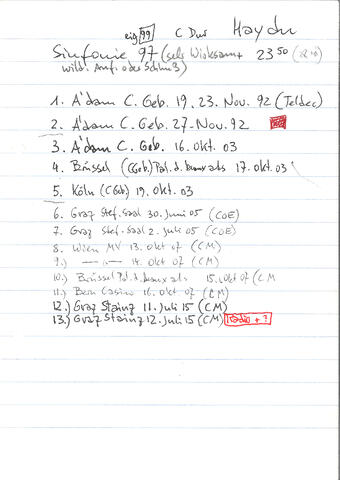 eig 99 C Dur Haydn
Sinfonie 97 (sehr Wirksam 23 50
wild. Anf. oder Schluß)
1. A'dam C. Geb. 19, 23. Nov. 92 (Teldec)
2. A'dam C. Geb. 27. Nov. 92
3. A'dam C. Geb. 16. Okt. 03
4. Brüssel (CGeb.) Pal. d. beaux arts 17. Okt. 03
5. Köln (CGeb) 19. Okt. 03
6. Graz Stef. Saal 30. Juni 05 (COE)
7. Graz Stef. Saal 2. Juli 05 (COE)
8. Wien MV 13. Okt 07 (CM)
9.) —"— 14. Okt 07 (CM)
10.) Brüssel Pal. d. beaux arts 15. Okt 07 (CM
11.) Bern Casino 16. Okt 07 (CM)
12.) Graz Stainz 11. Juli 15 (CM)
13.) Graz Stainz 12. Juli 15 (CM) Radio + ?